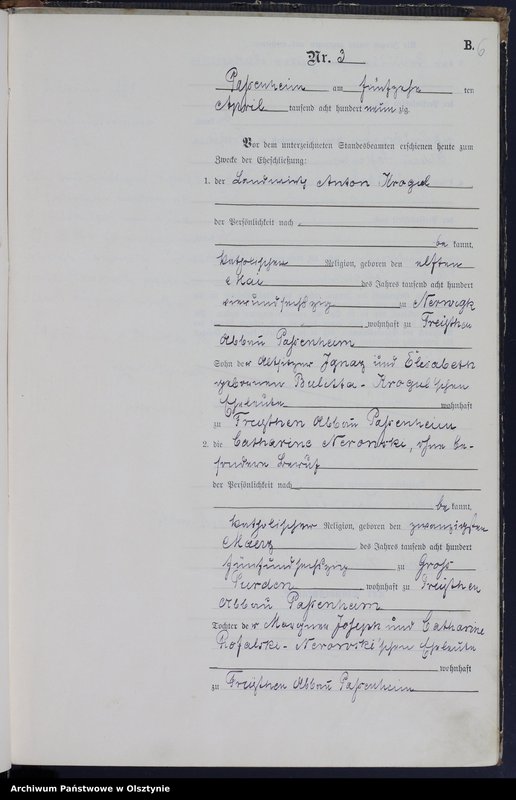 B. 6
Nr. 3
Passenheim am fünfzehn ten
April tausend acht hundert neunzig.
Vor dem unterzeichneten Standesbeamten erschienen heute zum
Zwecke der Eheschließung:
1. der Landwirth Anton Krogul
der Persönlichkeit nach
be kannt,
katholischer Religion, geboren den elften
Mai des Jahres tausend acht hundert
vierundsechszig zu Nerwigk
, wohnhaft zu Freythen
Abbau Passenheim
Sohn der Altsitzer Ignaz und Elisabeth
geborenen Buletta - Krogul'schen
Eheleute wohnhaft
zu Freythen Abbau Passenheim
2. die Catharina Nerowski, ohne be-
sondern Beruf
der Persönlichkeit nach
be kannt,
katholischer Religion, geboren den zwanzigsten
Maerz des Jahres tausend acht hundert
fünfundsechszig zu Groß
Purden , wohnhaft zu Freythen
Abbau Passenheim
Tochter der Joseph und Catharina
Rosalski - Nerowski'schen Eheleute
wohnhaft
zu Freythen Abbau Passenheim
Archiwum Państwowe w Olsztynie